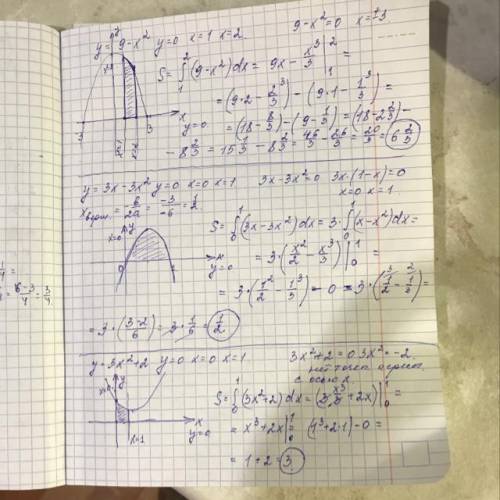 y = 9 - x² y=0 x=1 x=2 9 - x² = 0 x = ±3
S = ∫₁² (9 - x²) dx = 9x - x³/3 |₁² =
= (9·2 - 2³/3) - (9·1 - 1³/3) =
= (18 - 8/3) - (9 - 1/3) = (18 - 2 2/3) -
- 8 2/3 = 15 1/3 - 8 2/3 = 46/3 - 26/3 = 20/3 = 6 2/3
y
-3 3 x
y=0
y = 3x - 3x² y=0 x=0 x=1 3x - 3x² = 0 3x·(1-x) = 0
x верш. = -b/2a = -3/-6 = 1/2 x=0 x=1
S = ∫₀¹ (3x - 3x²) dx = 3·∫₀¹ (x - x²) dx =
= 3·(x²/2 - x³/3) |₀¹ =
x=0 y
0 x
y=0
= 3·(1²/2 - 1³/3) - 0 = 3·(1/2 - 1/3) =
= 3·(3-2/6) = 3·1/6 = 1/2
y = 3x² + 2 y=0 x=0 x=1 3x² + 2 = 0 3x² = -2
нет точек
с осью x.
S = ∫₀¹ (3x² + 2) dx = (3 x³/3 + 2x) |₀¹ =
= x³ + 2x |₀¹ = (1³ + 2·1) - 0 =
= 1 + 2 = 3
y
x
y=0
x=1